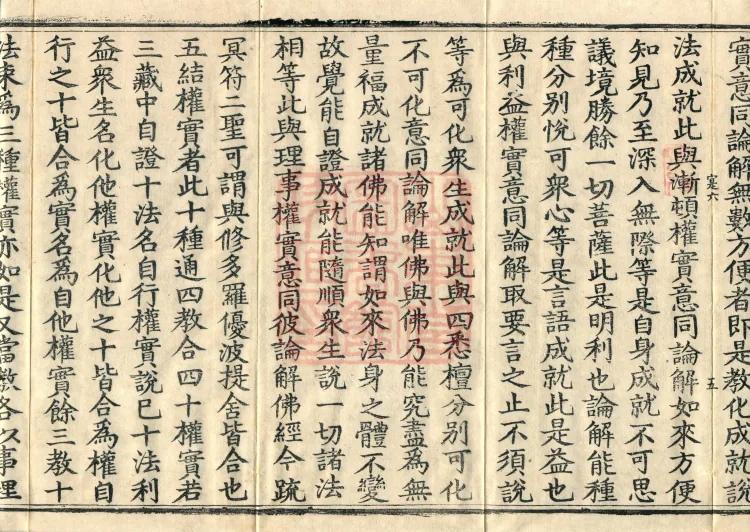 實意同論解無數方便者即是教化成就說
法成就此與漸頓權實意同論解如來方便
寔六
五
知見乃至深入無際等是自身成就不可思
議境勝餘一切菩薩此是明利也論解能種
種分別悅可衆心等是言語成就此是益也
與利益權實意同論解取要言之止不須說
等爲可化衆生成就此與四悉檀分別可化
不可化意同論解唯佛與佛乃能究盡爲無
量福成就諸佛能知謂如來法身之體不變
故覺能自證成就能隨順衆生說一切諸法
相等此與理事權實意同彼論解佛經今䟽
冥符二聖可謂與修多羅優波提舍皆合也
五結權實者此十種通四教合四十權實若
三藏中自證十法名自行權實說已十法利
益衆生名化他權實化他之十皆合爲權自
行之十皆合爲實名爲自他權實餘三教十
法束爲三種權實亦如是又當教各以事理